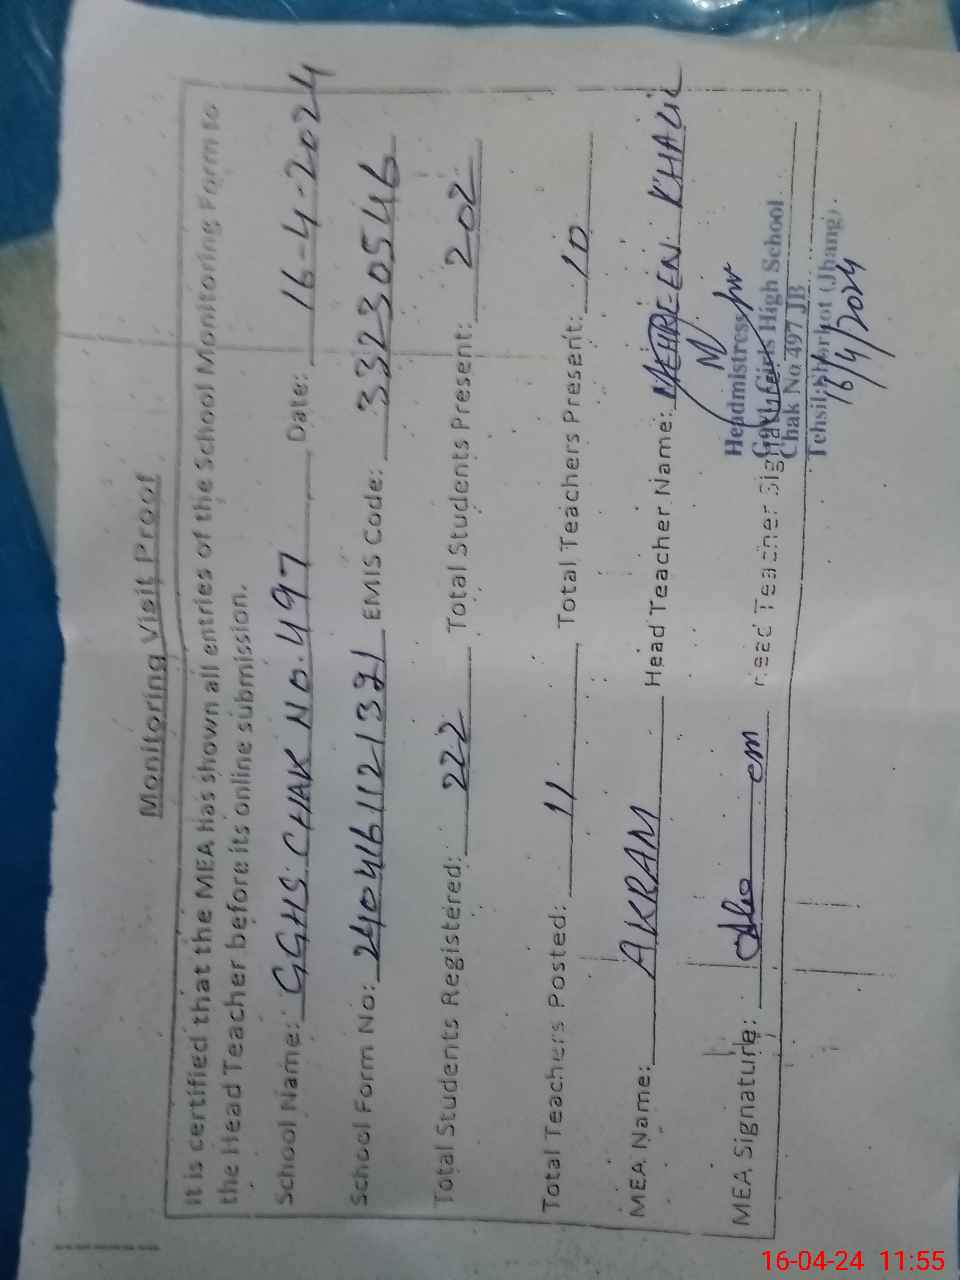 Monitoring Visit Proof
It is certified that the MEA has shown all entries of the School Monitoring Form to
the Head Teacher before its online submission.
School Name: GGHS CHAK NO.497 Date: 16-4-2024
School Form No: EMIS Code: 33230546
Total Students Registered: 222 Total Students Present: 202
Total Teachers Posted: 11 Total Teachers Present: 10
MEA Name: AKRAM Head Teacher Name: MEHREEN KHALIL
MEA Signature: Head Teacher Signature:
Headmistress
Govt. Girls High School
Chak No 497 JB
Tehsil: Shorkot (Jhang).
16/4/2024
16-04-24 11:55